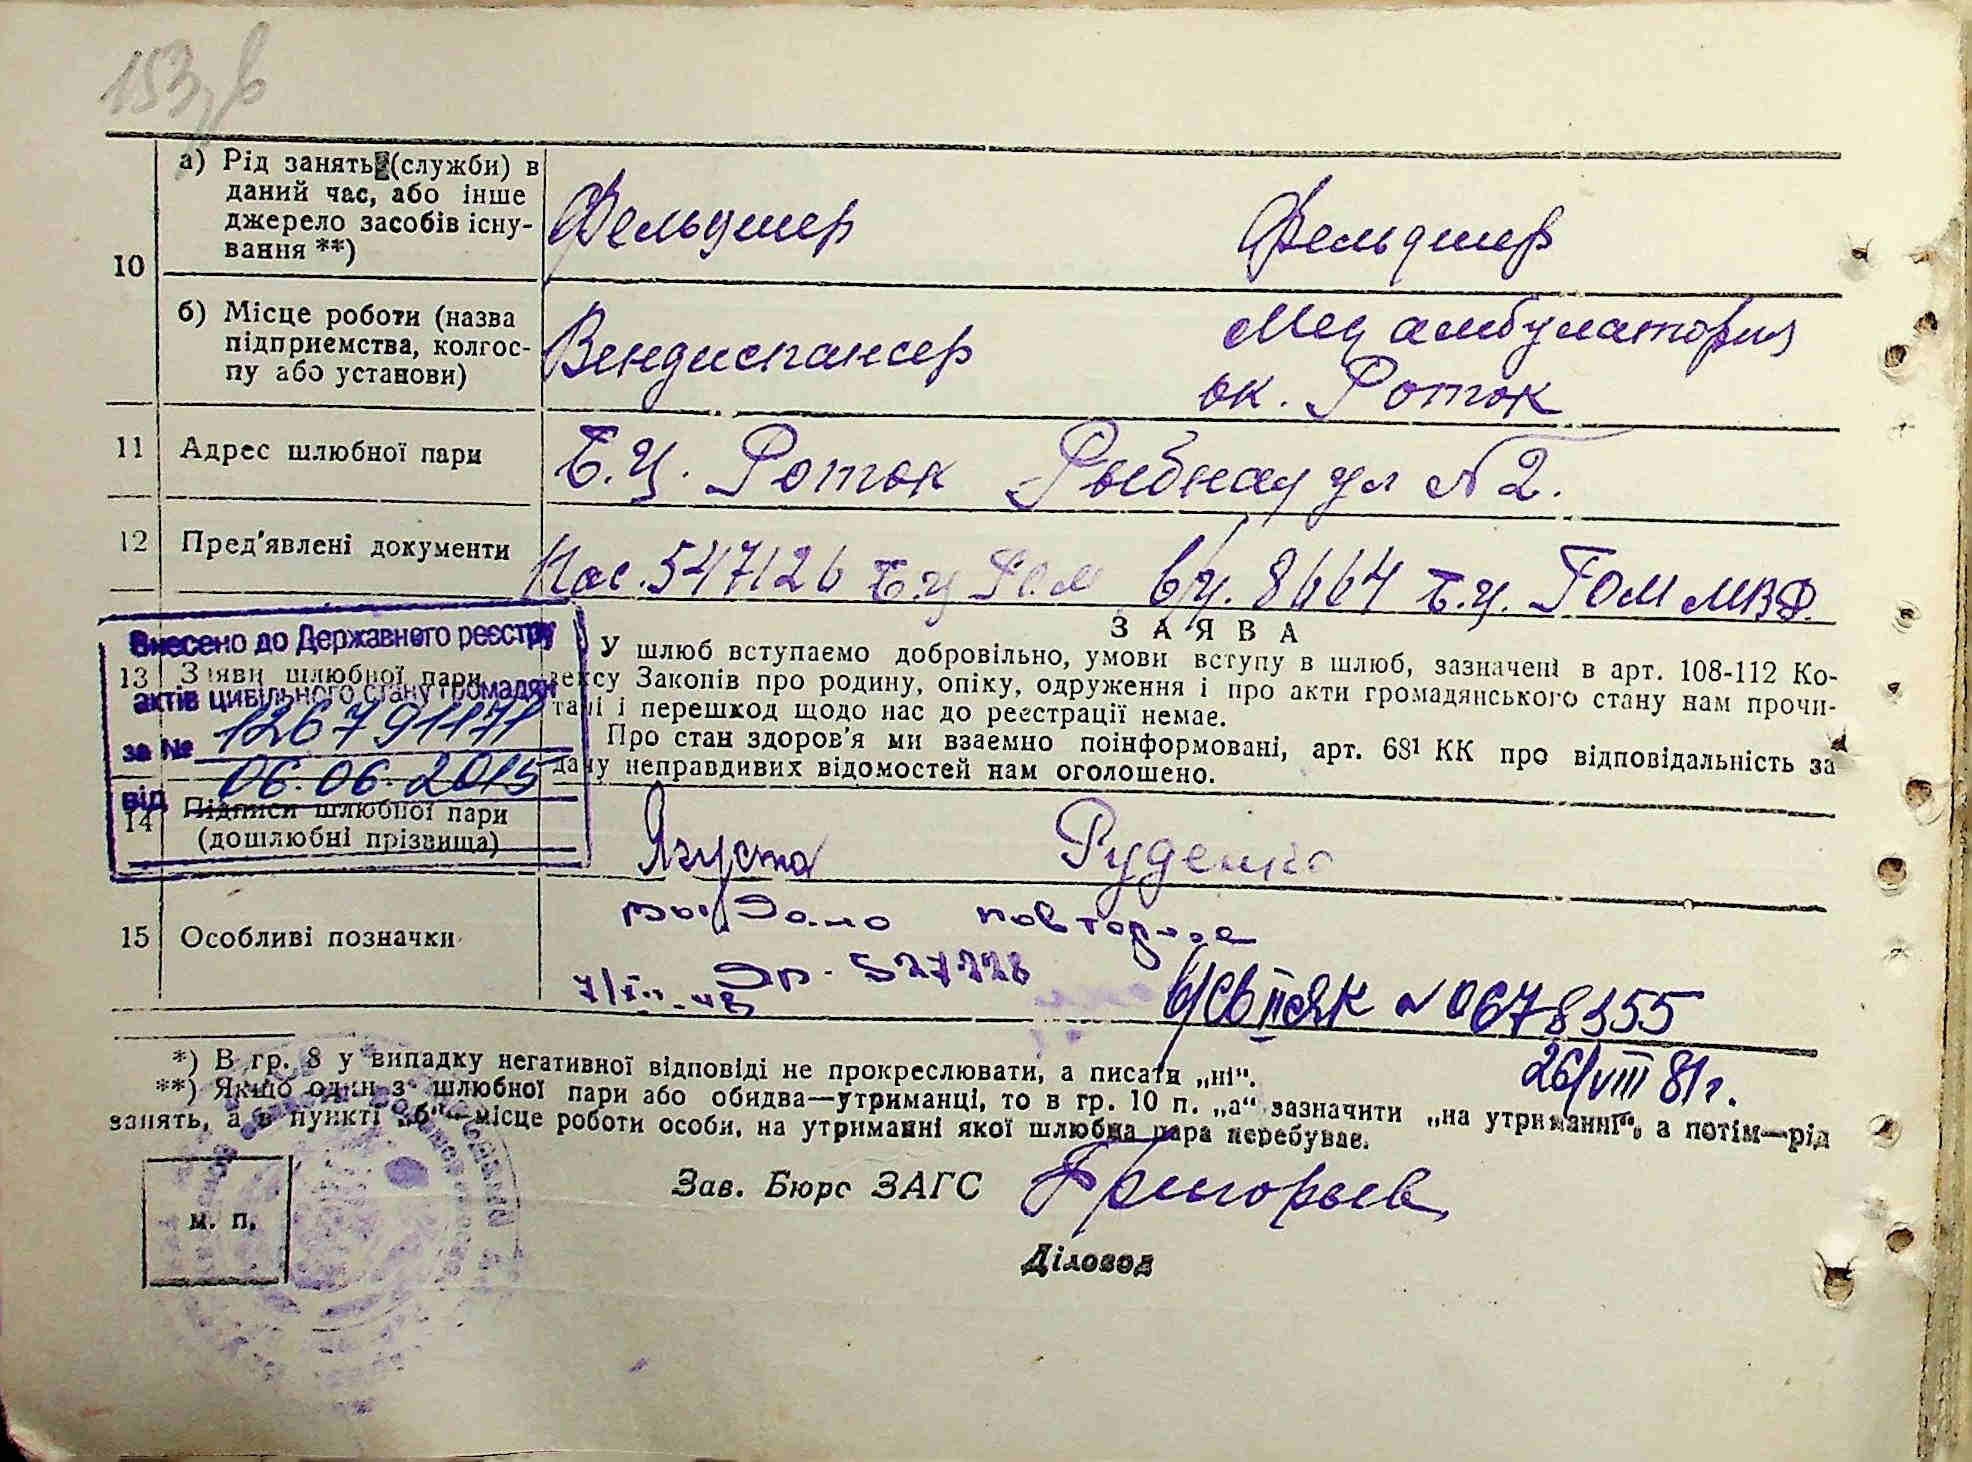 153, в
10
а) Рід занять (служби) в
даний час, або інше
джерело засобів існу-
вання **)
Фельдшер Фельдшер
б) Місце роботи (назва
підприємства, колгос-
пу або установи)
Вендиспансер Мед амбулатория
ок. Роток
11 Адрес шлюбної пари
Б.Ц. Роток Рыбная ул № 2.
12 Пред'явлені документи
Пас. 547126 Б.Ц Р.О.М в/ч. 8664 Б.Ц. ГОМ МВД.
Внесено до Державного реєстру
актів цивільного стану громадян
за № 12679117
від 06.06.2015
13 Заяви шлюбної пари
ЗАЯВА
У шлюб вступаємо добровільно, умови вступу в шлюб, зазначені в арт. 108-112 Ко-
дексу Законів про родину, опіку, одруження і про акти громадянського стану нам прочи-
тані і перешкод щодо нас до реєстрації немає.
Про стан здоров'я ми взаємно поінформовані, арт. 68¹ КК про відповідальність за
дачу неправдивих відомостей нам оголошено.
14 Підписи шлюбної пари
(дошлюбні прізвища)
Ягуста Руденко
15 Особливі позначки
выдано повторное
ЭР. 527228
в/св II ЯК № 0678355
26/VIII 81г.
*) В гр. 8 у випадку негативної відповіді не прокреслювати, а писати „ні“.
**) Якщо один з шлюбної пари або обидва—утриманці, то в гр. 10 п. „а“ зазначити „на утриманні“, а потім—рід
занять, а в пункті „б“—місце роботи особи, на утриманні якої шлюбна пара перебуває.
м. п.
Зав. Бюро ЗАГС Григорьев
Діловод